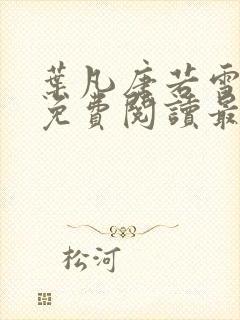 葉凡唐若雪
免費閱讀最
松河